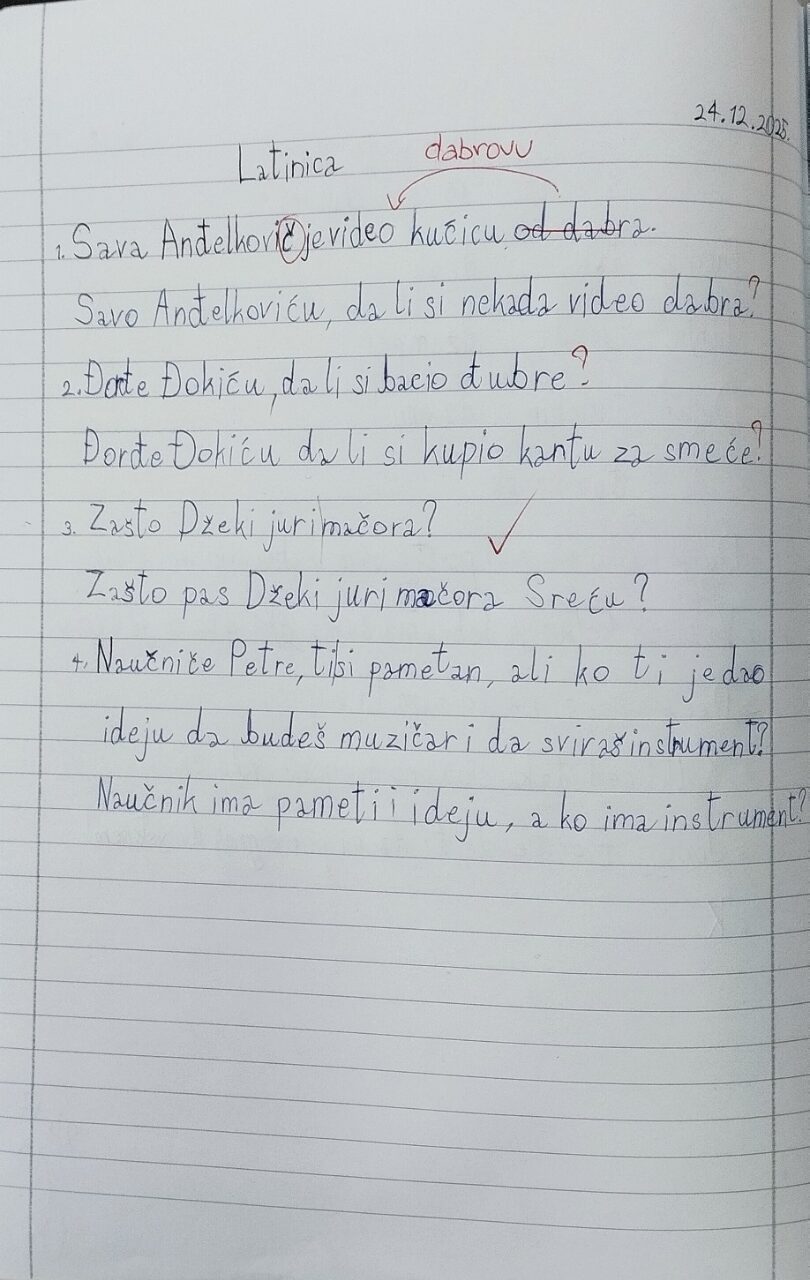 24.12.2025.
Latinica
dabrovu
1. Sava Anđelkovič je video kućicu od dabra.
Savo Anđelkoviću, da li si nekada video dabra?
2. Đorđe Đokiću, da li si bacio đubre?
Đorđe Đokiću da li si kupio kantu za smeće?
3. Zašto Džeki juri mačora?
Zašto pas Džeki juri mačora Sreću?
4. Naučniče Petre, ti si pametan, ali ko ti je dao
ideju da budeš muzičar i da sviraš instrument?
Naučnik ima pameti i ideju, a ko ima instrument?